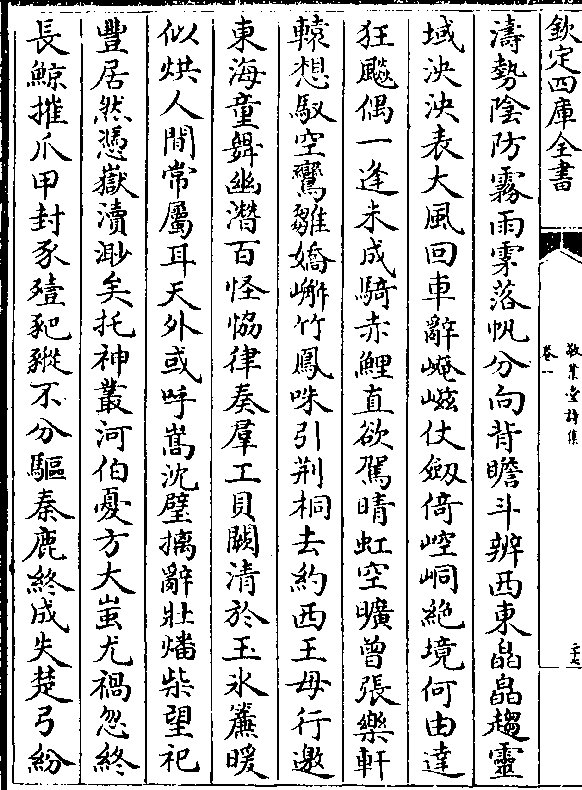 欽定四庫全書
敬業堂詩集
卷一
濤勢陰防霧雨霥落帆分向背瞻斗辨西東皛皛趨靈
域泱泱表大風回車辭崦嵫仗劒倚崆峒絶境何由達
狂飈偶一逢未成騎赤鯉直欲駕晴虹空曠曾張樂軒
轅想馭空鸞雛嬌嶰竹鳳咮引荆桐去約西王母行邀
東海童舞幽潛百怪恊律奏羣工貝闕清於玉氷簾暖
似烘人間常屬耳天外或呼嵩沈璧摛辭壯燔柴望祀
豐居然憑嶽瀆渺矣托神叢河伯憂方大蚩尤禍忽終
長鯨摧爪甲封豕殪豝豵不分驅秦鹿終成失楚弓紛